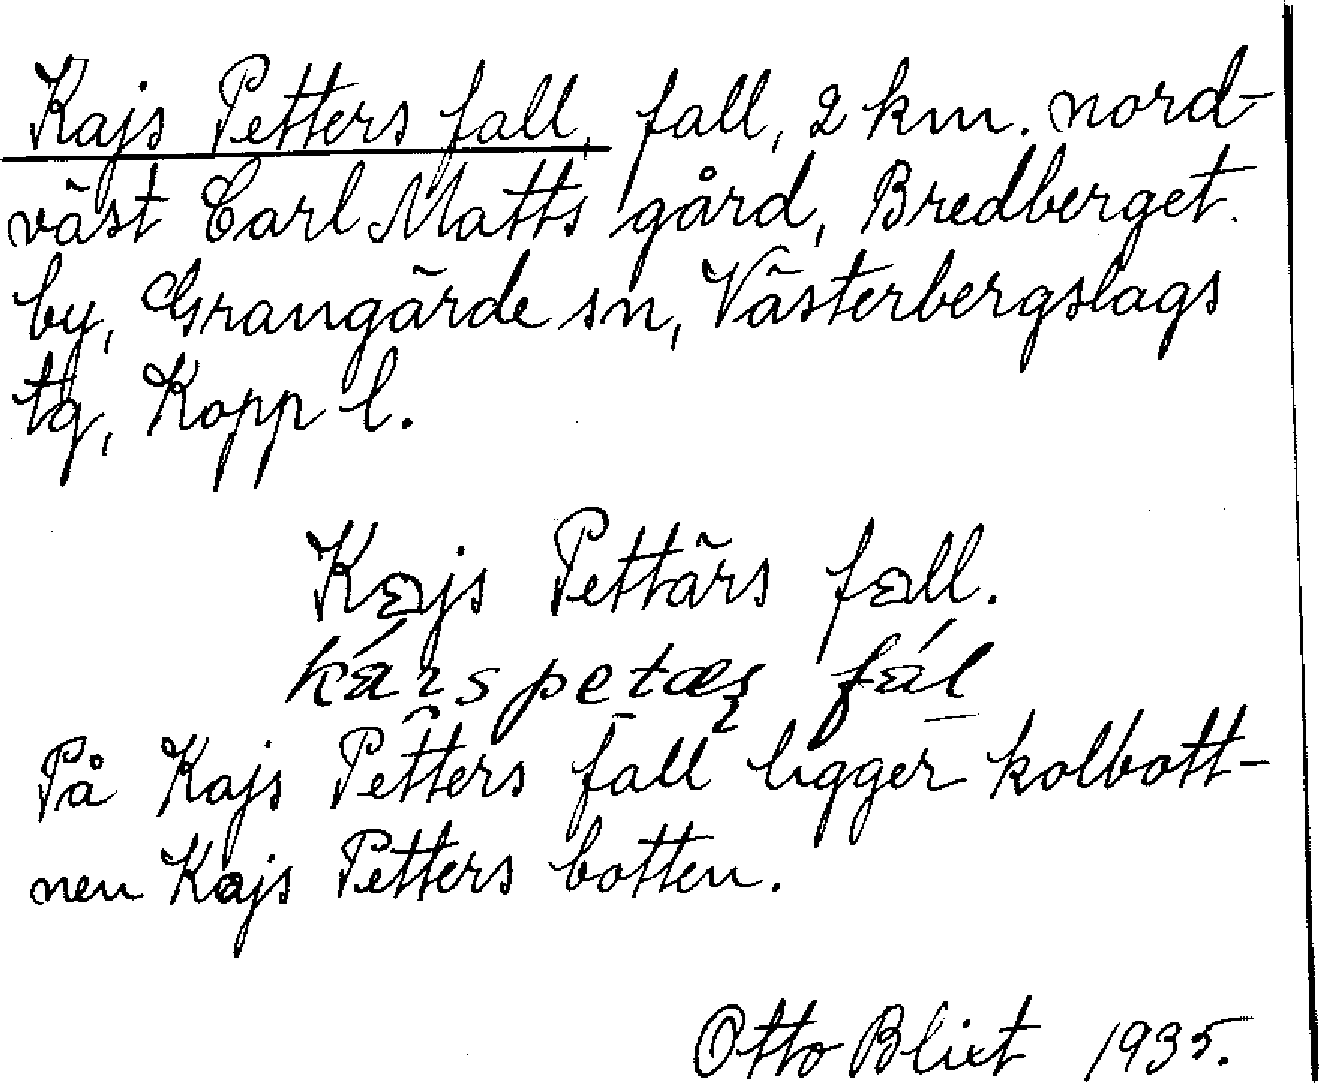 Kajs Petters fall, fall, 2 km. nord-
väst Carl Matts gård, Bredberget.
by, Grangärde sn, Västerbergslags
tg, Kopp l.
Kajs Pettärs fall.
På Kajs Petters fall ligger kolbott-
nen Kajs Petters botten.
Otto Blixt 1935.